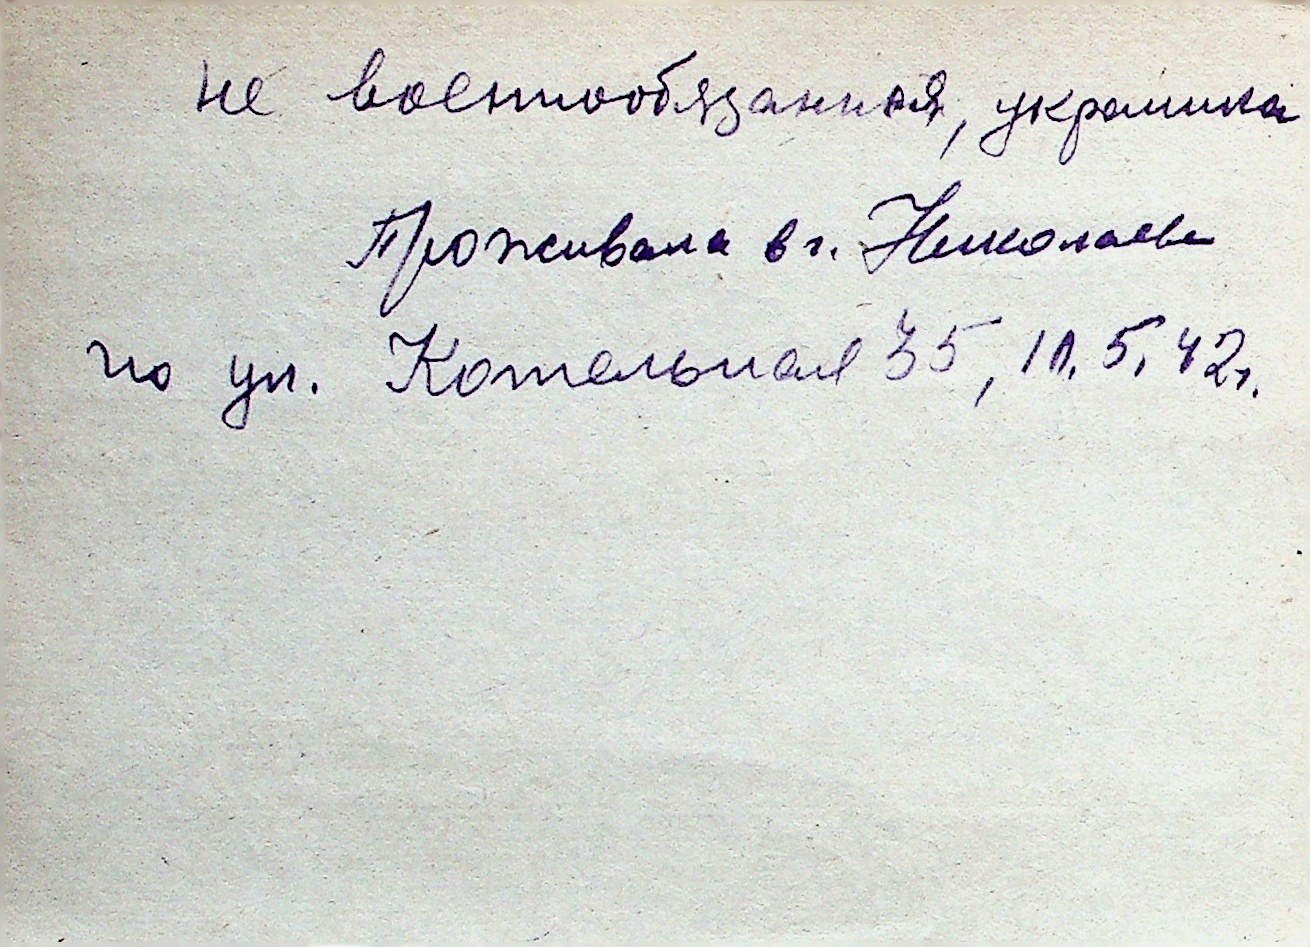 не военнообязанная, украинка
Проживала в г. Николаеве
по ул. Котельная 35, 10.5.42г.